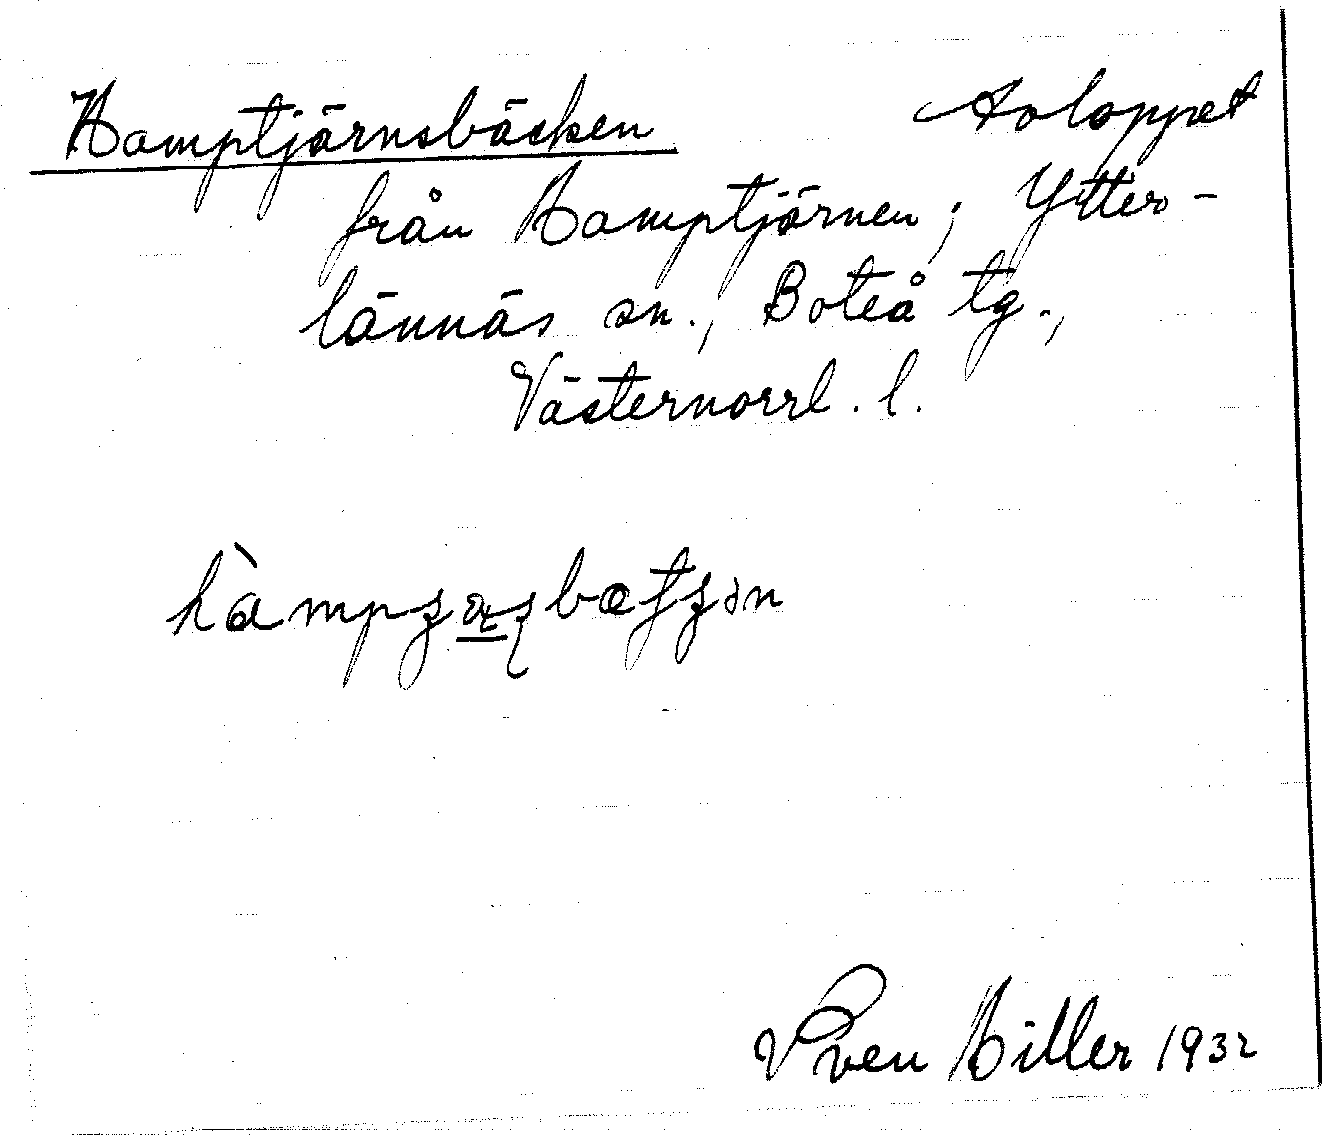 Hamptjärnsbäcken Avloppet
från Hamptjärnen; Ytter-
lännäs sn., Boteå tg.,
Västernorrl. l.
Sven Hiller 1932